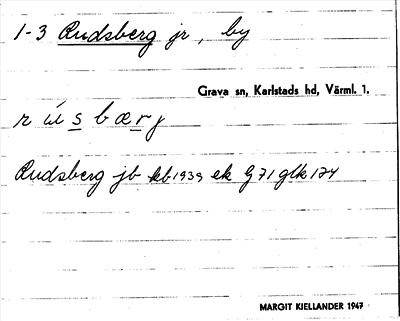 1-3 Rudsberg jr, by
Grava sn, Karlstads hd, Värml. l.
r ú s b æ r j
Rudsberg jb kb1939 ek G71 glk174
MARGIT KIELLANDER 1947